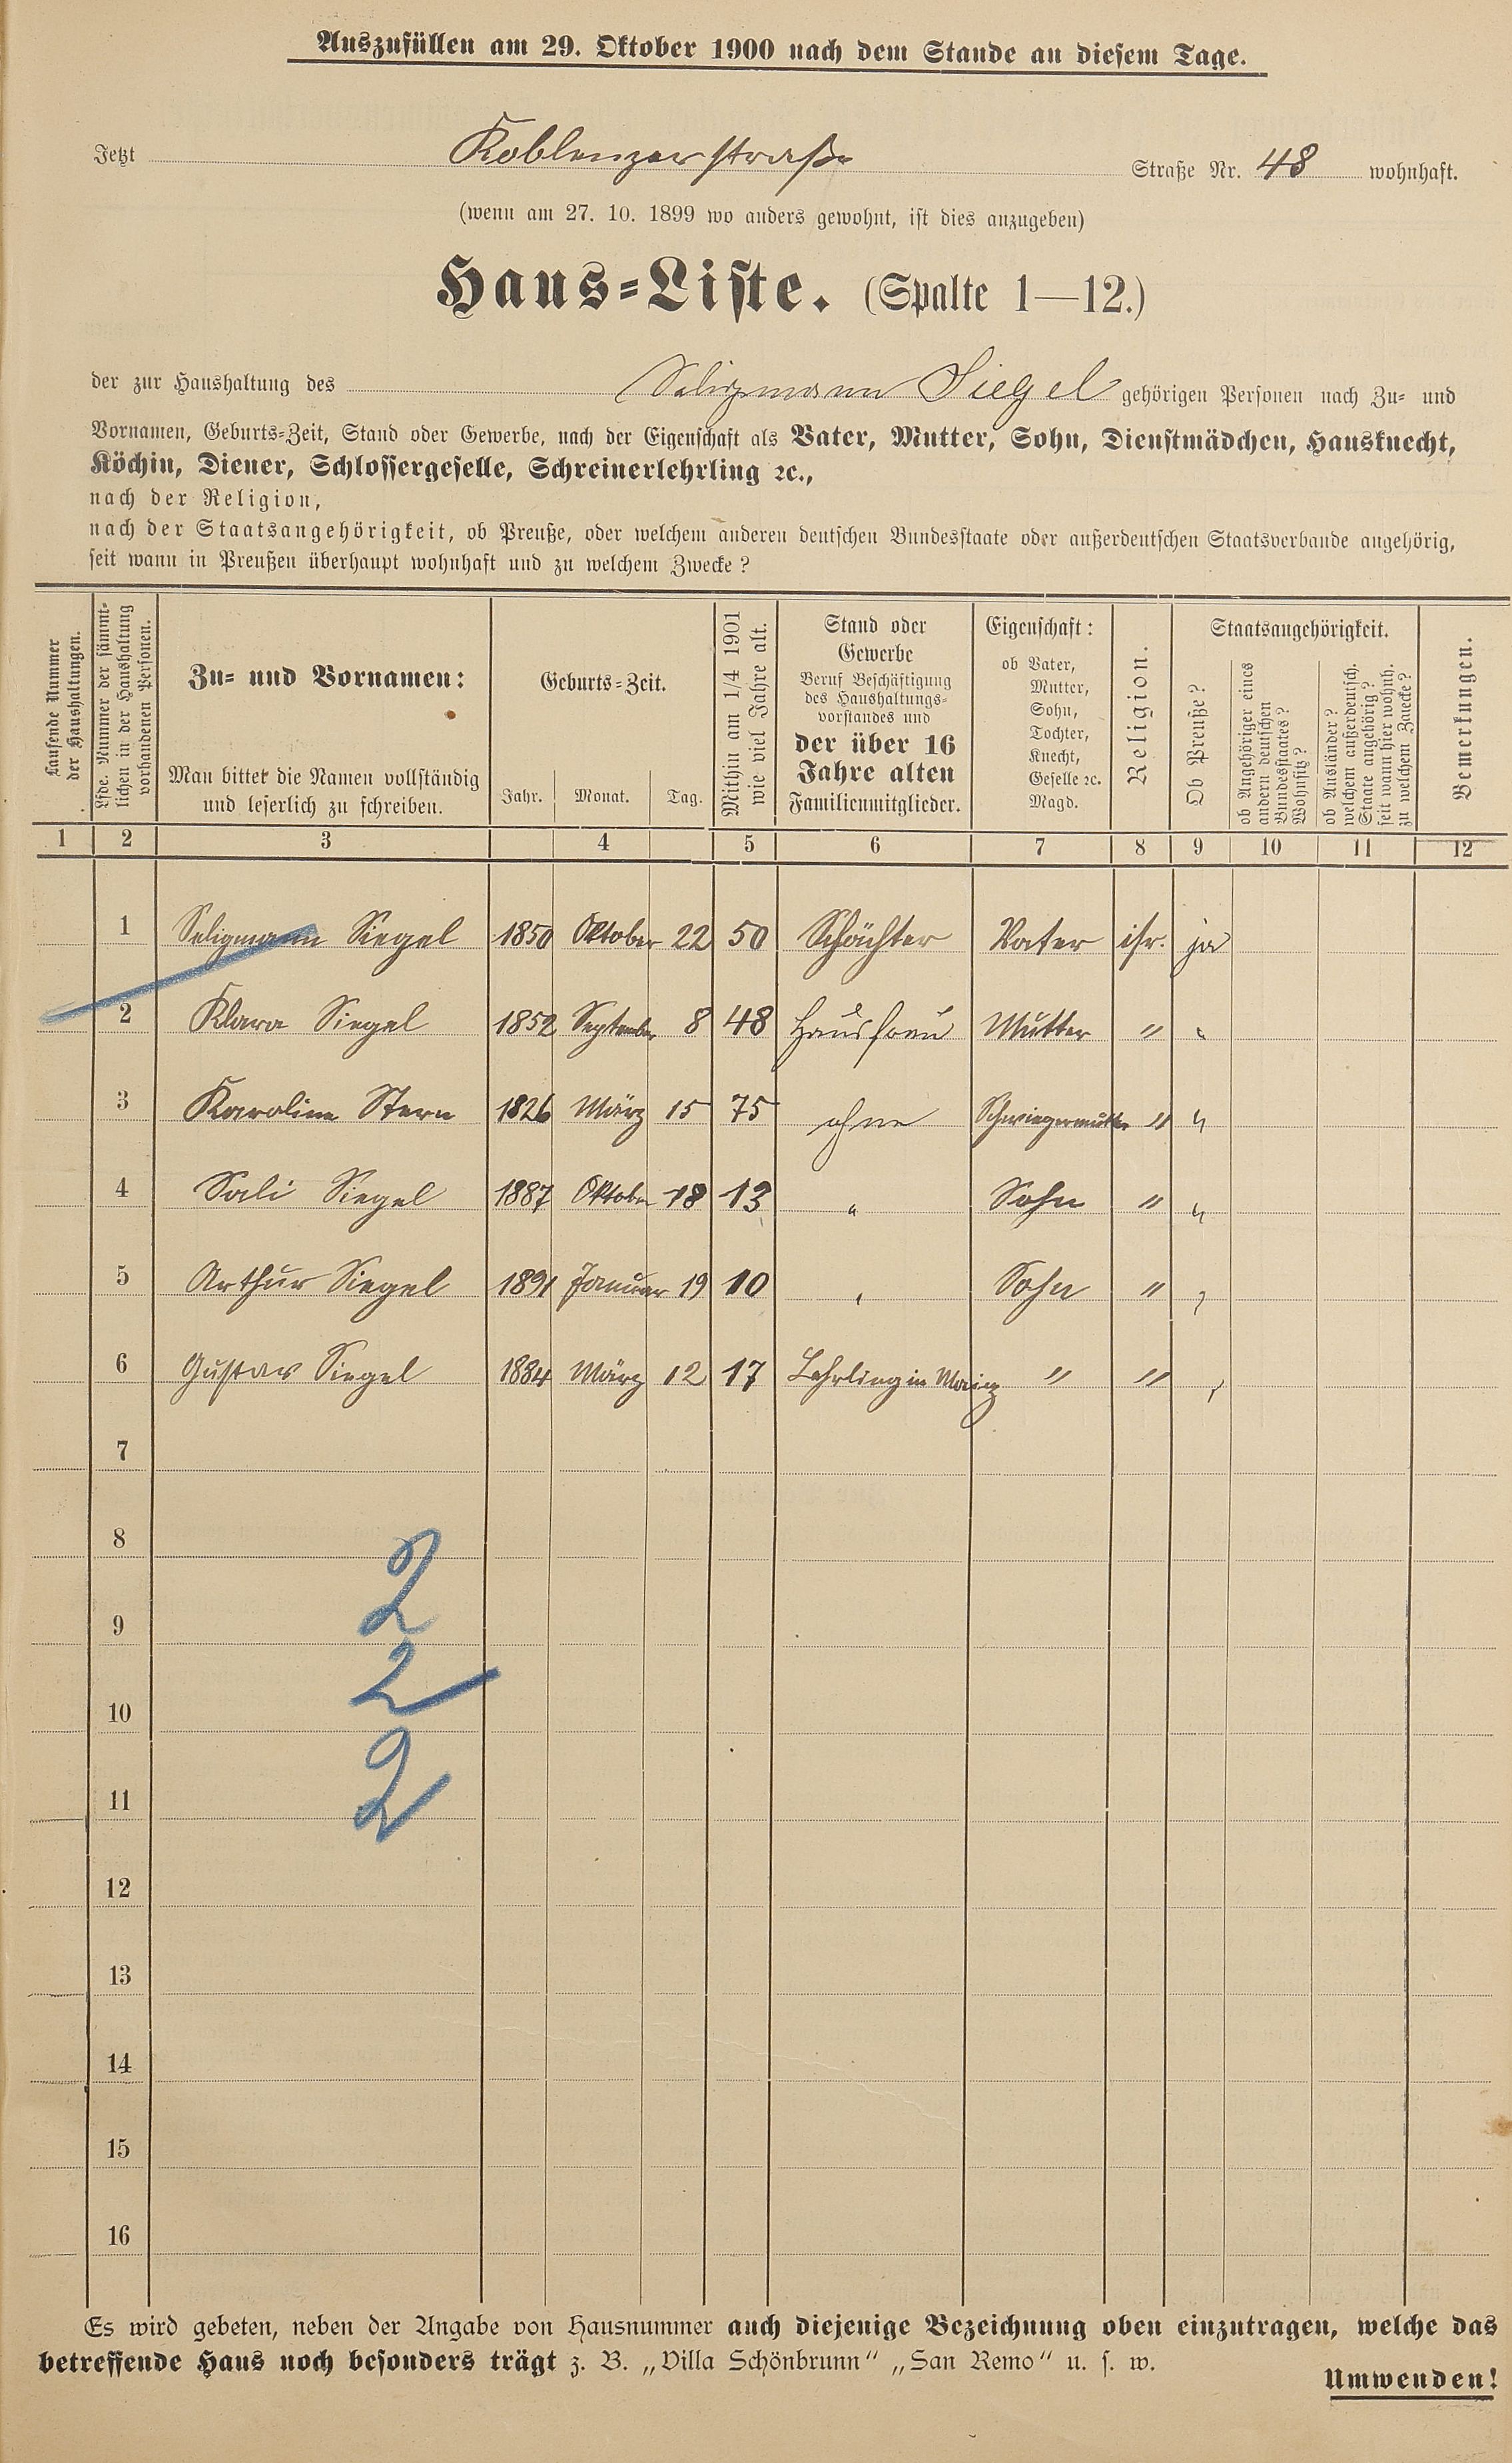 Auszufüllen am 29. Oktober 1900 nach dem Stande an diesem Tage.
Jetzt Koblenzerstraße Straße Nr. 48 wohnhaft.
(wenn am 27. 10. 1899 wo anders gewohnt, ist dies anzugeben)
Haus=Liste. (Spalte 1—12.)
der zur Haushaltung des Seligmann Siegel gehörigen Personen nach Zu= und
Vornamen, Geburts=Zeit, Stand oder Gewerbe, nach der Eigenschaft als Vater, Mutter, Sohn, Dienstmädchen, Hausknecht,
Köchin, Diener, Schlossergeselle, Schreinerlehrling ꝛc.,
nach der Religion,
nach der Staatsangehörigkeit, ob Preuße, oder welchem anderen deutschen Bundesstaate oder außerdeutschen Staatsverbande angehörig,
seit wann in Preußen überhaupt wohnhaft und zu welchem Zwecke?
Laufende Nummer
der Haushaltungen.
Lfde. Nummer der sämmt-
lichen in der Haushaltung
vorhandenen Personen.
Zu= und Vornamen:
Man bittet die Namen vollständig
und leserlich zu schreiben.
Geburts=Zeit.
Jahr. Monat. Tag.
Mithin am 1/4 1901
wie viel Jahre alt.
Stand oder
Gewerbe
Beruf Beschäftigung
des Haushaltungs-
vorstandes und
der über 16
Jahre alten
Familienmitglieder.
Eigenschaft:
ob Vater,
Mutter,
Sohn,
Tochter,
Knecht,
Geselle ꝛc.
Magd.
Religion.
Staatsangehörigkeit.
Ob Preuße?
ob Angehöriger eines
andern deutschen
Bundesstaates?
Wohnsitz?
ob Ausländer?
welchem außerdeutsch.
Staate angehörig?
seit wann hier wohnh.
zu welchem Zwecke?
Bemerkungen.
1 2 3 4 5 6 7 8 9 10 11 12
1 Seligmann Siegel 1850 Oktober 22 50 Schächter Vater isr. ja
2 Klara Siegel 1852 September 8 48 Hausfrau Mutter " "
3 Karoline Stern 1826 März 15 75 ohne Schwiegermutter " "
4 Sali Siegel 1887 Oktober 18 13 " Sohn " "
5 Arthur Siegel 1891 Januar 19 10 " Sohn " "
6 Gustav Siegel 1884 März 12 17 Lehrling in Mainz " " "
7
8
2
9
2
10
2
11
12
13
14
15
16
Es wird gebeten, neben der Angabe von Hausnummer auch diejenige Bezeichnung oben einzutragen, welche das
betreffende Haus noch besonders trägt z. B. „Villa Schönbrunn" „San Remo" u. s. w.
Umwenden!